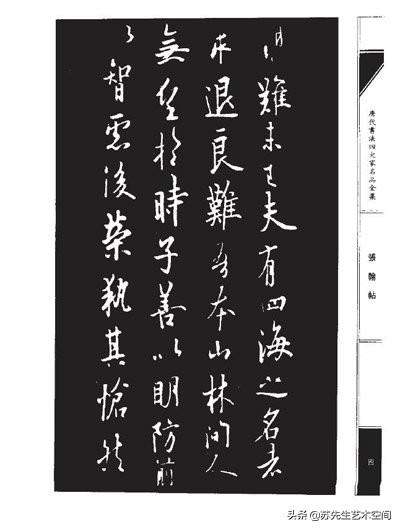 難未已夫有四海之名者
求退良難吾本山林間人
無望於時子善以明防前
以智慮後榮執其愴然
唐代書法四大家名品全集
張翰帖
四
头条 @苏先生艺术空间